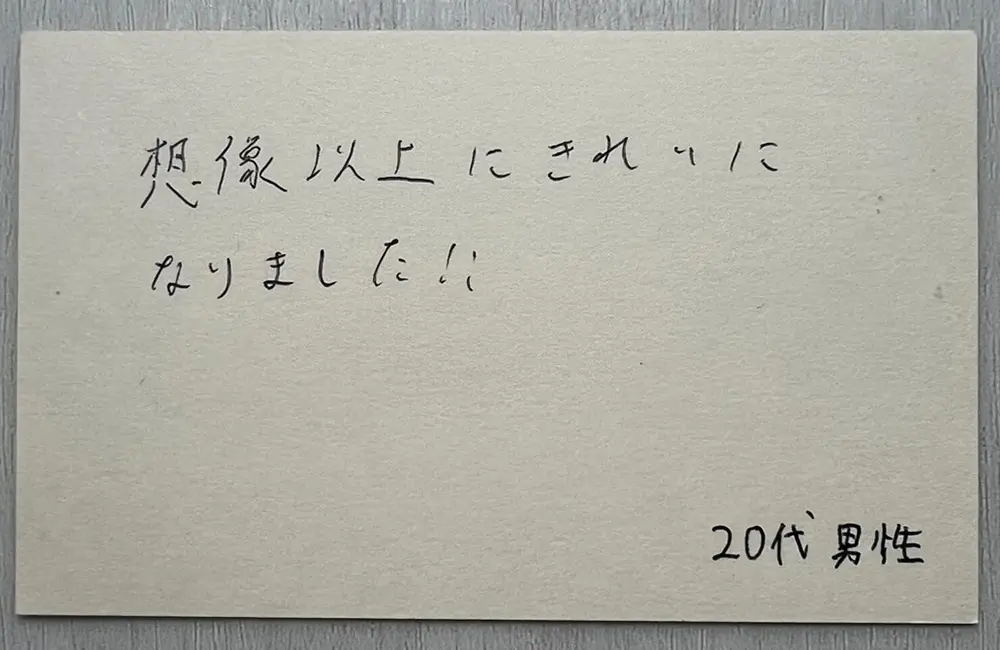 想像以上にきれいに
なりました!!
20代 男性